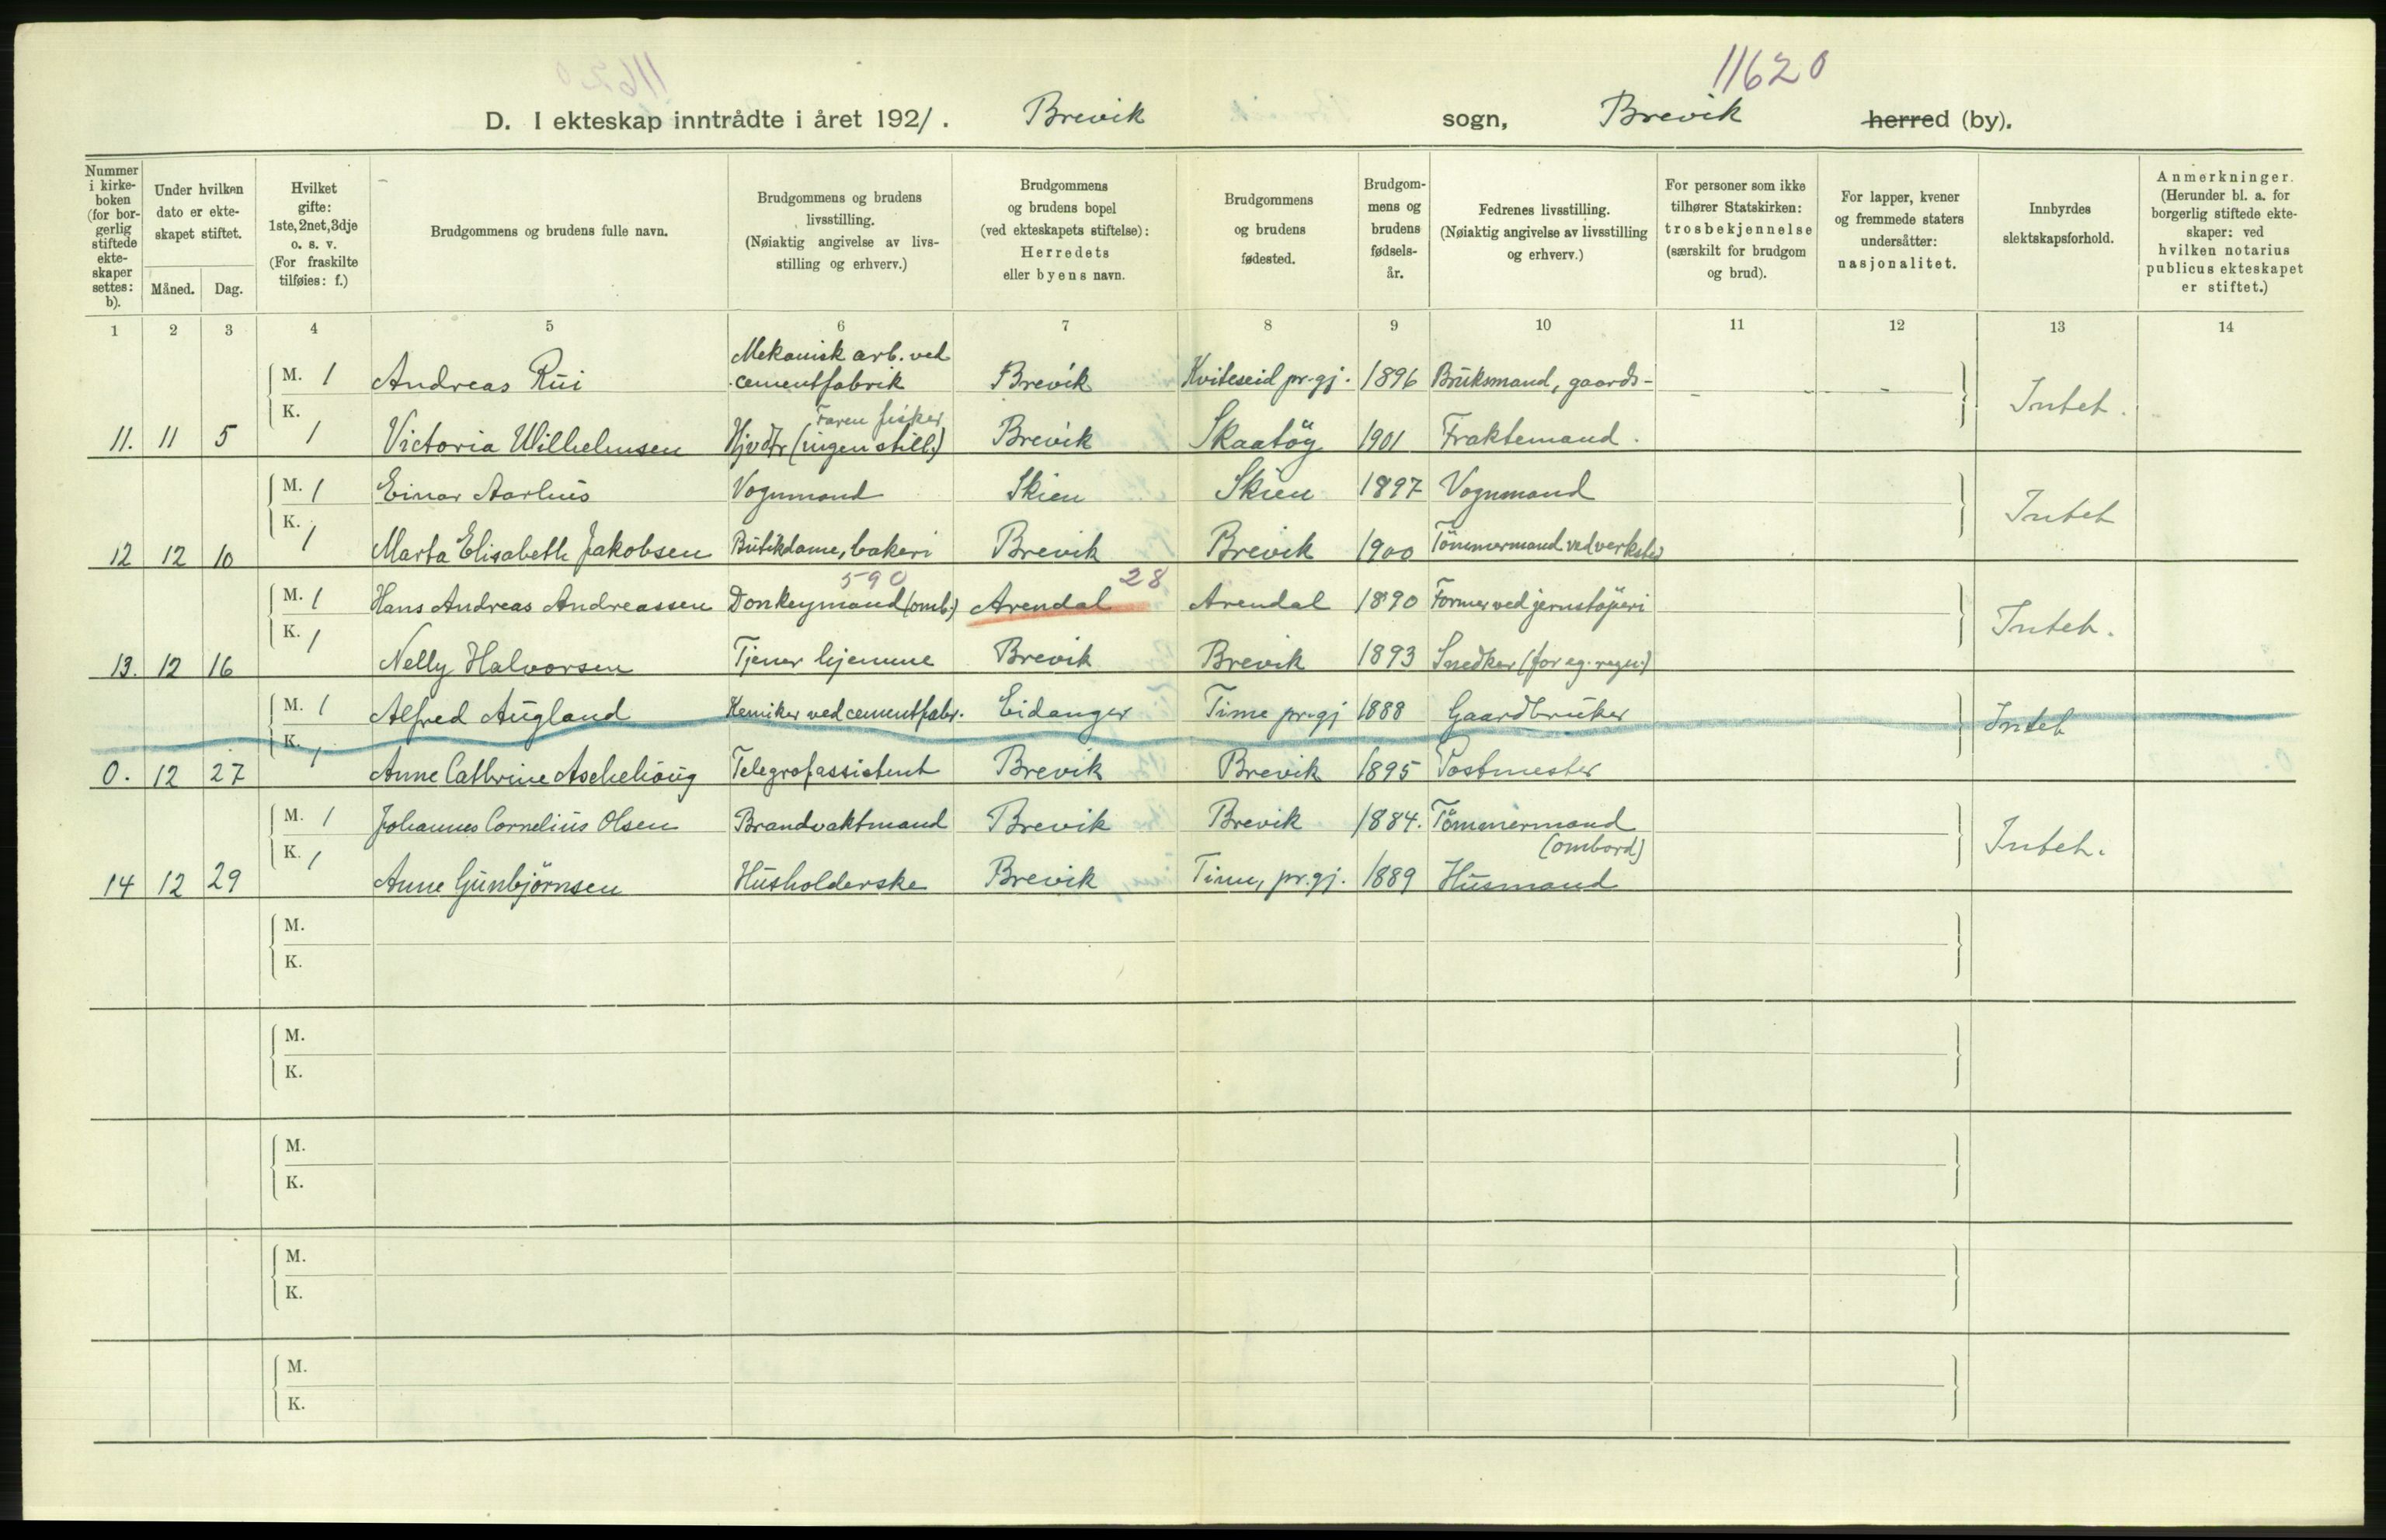 11620
D. I ekteskap inntrådte i året 1921. Brevik sogn, Brevik herred (by).
Nummer i kirke- boken (for bor- gerlig stiftede ekte- skaper settes: b).
Under hvilken dato er ekte- skapet stiftet.
Måned. Dag.
Hvilket gifte: 1ste, 2net, 3dje o. s. v. (For fraskilte tilføies: f.)
Brudgommens og brudens fulle navn.
Brudgommens og brudens livsstilling. (Nøiaktig angivelse av livs- stilling og erhverv.)
Brudgommens og brudens bopel (ved ekteskapets stiftelse): Herredets eller byens navn.
Brudgommens og brudens fødested.
Brudgom- mens og brudens fødsels- år.
Fedrenes livsstilling. (Nøiaktig angivelse av livsstilling og erhverv.)
For personer som ikke tilhører Statskirken: trosbekjennelse (særskilt for brudgom og brud).
For lapper, kvener og fremmede staters undersåtter: nasjonalitet.
Innbyrdes slektskapsforhold.
Anmerkninger. (Herunder bl. a. for borgerlig stiftede ekte- skaper: ved hvilken notarius publicus ekteskapet er stiftet.)
1 2 3 4 5 6 7 8 9 10 11 12 13 14
Mekanisk arb. ved
M. 1 Andreas Rui cementfabrik Brevik Kviteseid pr.gj. 1896 Bruksmand, gaards- Intet.
K. Faren fisker
11. 11 5 1 Victoria Wilhelmsen Hjvdtr (ingen still.) Brevik Skaatöy 1901 Fraktemand.
M. 1 Einar Aarhus Vognmand Skien Skien 1897 Vognmand Intet
K.
12 12 10 1 Marta Elisabeth Jakobsen Butikdame, bakeri Brevik Brevik 1900 Tömmermand ved verksted
590 28
M. 1 Hans Andreas Andreassen Donkeymand (omb.) Arendal Arendal 1890 Former ved jernstöperi Intet.
K. 1
13. 12 16 Nelly Halvorsen Tjener hjemme Brevik Brevik 1893 Snedker (for eg. regn.)
M. 1 Alfred Augland Kemiker ved cementfabr. Eidanger Time pr.gj 1888 Gaardbruker Intet
K. 1
0. 12 27 Anne Cathrine Aschehoug Telegrafassistent Brevik Brevik 1895 Postmester
M. 1 Johannes Cornelius Olsen Brandvaktmand Brevik Brevik 1884. Tömmermand Intet.
K. 1 (ombord)
14 12 29 Anne Gunbjörnsen Husholderske Brevik Tinn, pr.gj. 1889 Husmand
M.
K.
M.
K.
M.
K.
M.
K.
M.
K.